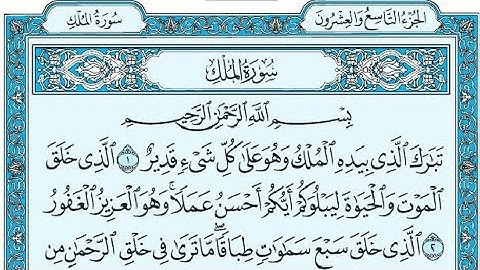 الجزء التاسع والعشرون سورة الملك
سُورَةُ المُلْكِ
بِسْمِ اللَّهِ الرَّحْمَٰنِ الرَّحِيمِ
تَبَٰرَكَ ٱلَّذِى بِيَدِهِ ٱلْمُلْكُ وَهُوَ عَلَىٰ كُلِّ شَىْءٍ قَدِيرٌ ١ ٱلَّذِى خَلَقَ
ٱلْمَوْتَ وَٱلْحَيَوٰةَ لِيَبْلُوَكُمْ أَيُّكُمْ أَحْسَنُ عَمَلًا ۚ وَهُوَ ٱلْعَزِيزُ ٱلْغَفُورُ
٢ ٱلَّذِى خَلَقَ سَبْعَ سَمَٰوَٰتٍ طِبَاقًا ۖ مَّا تَرَىٰ فِى خَلْقِ ٱلرَّحْمَٰنِ مِن